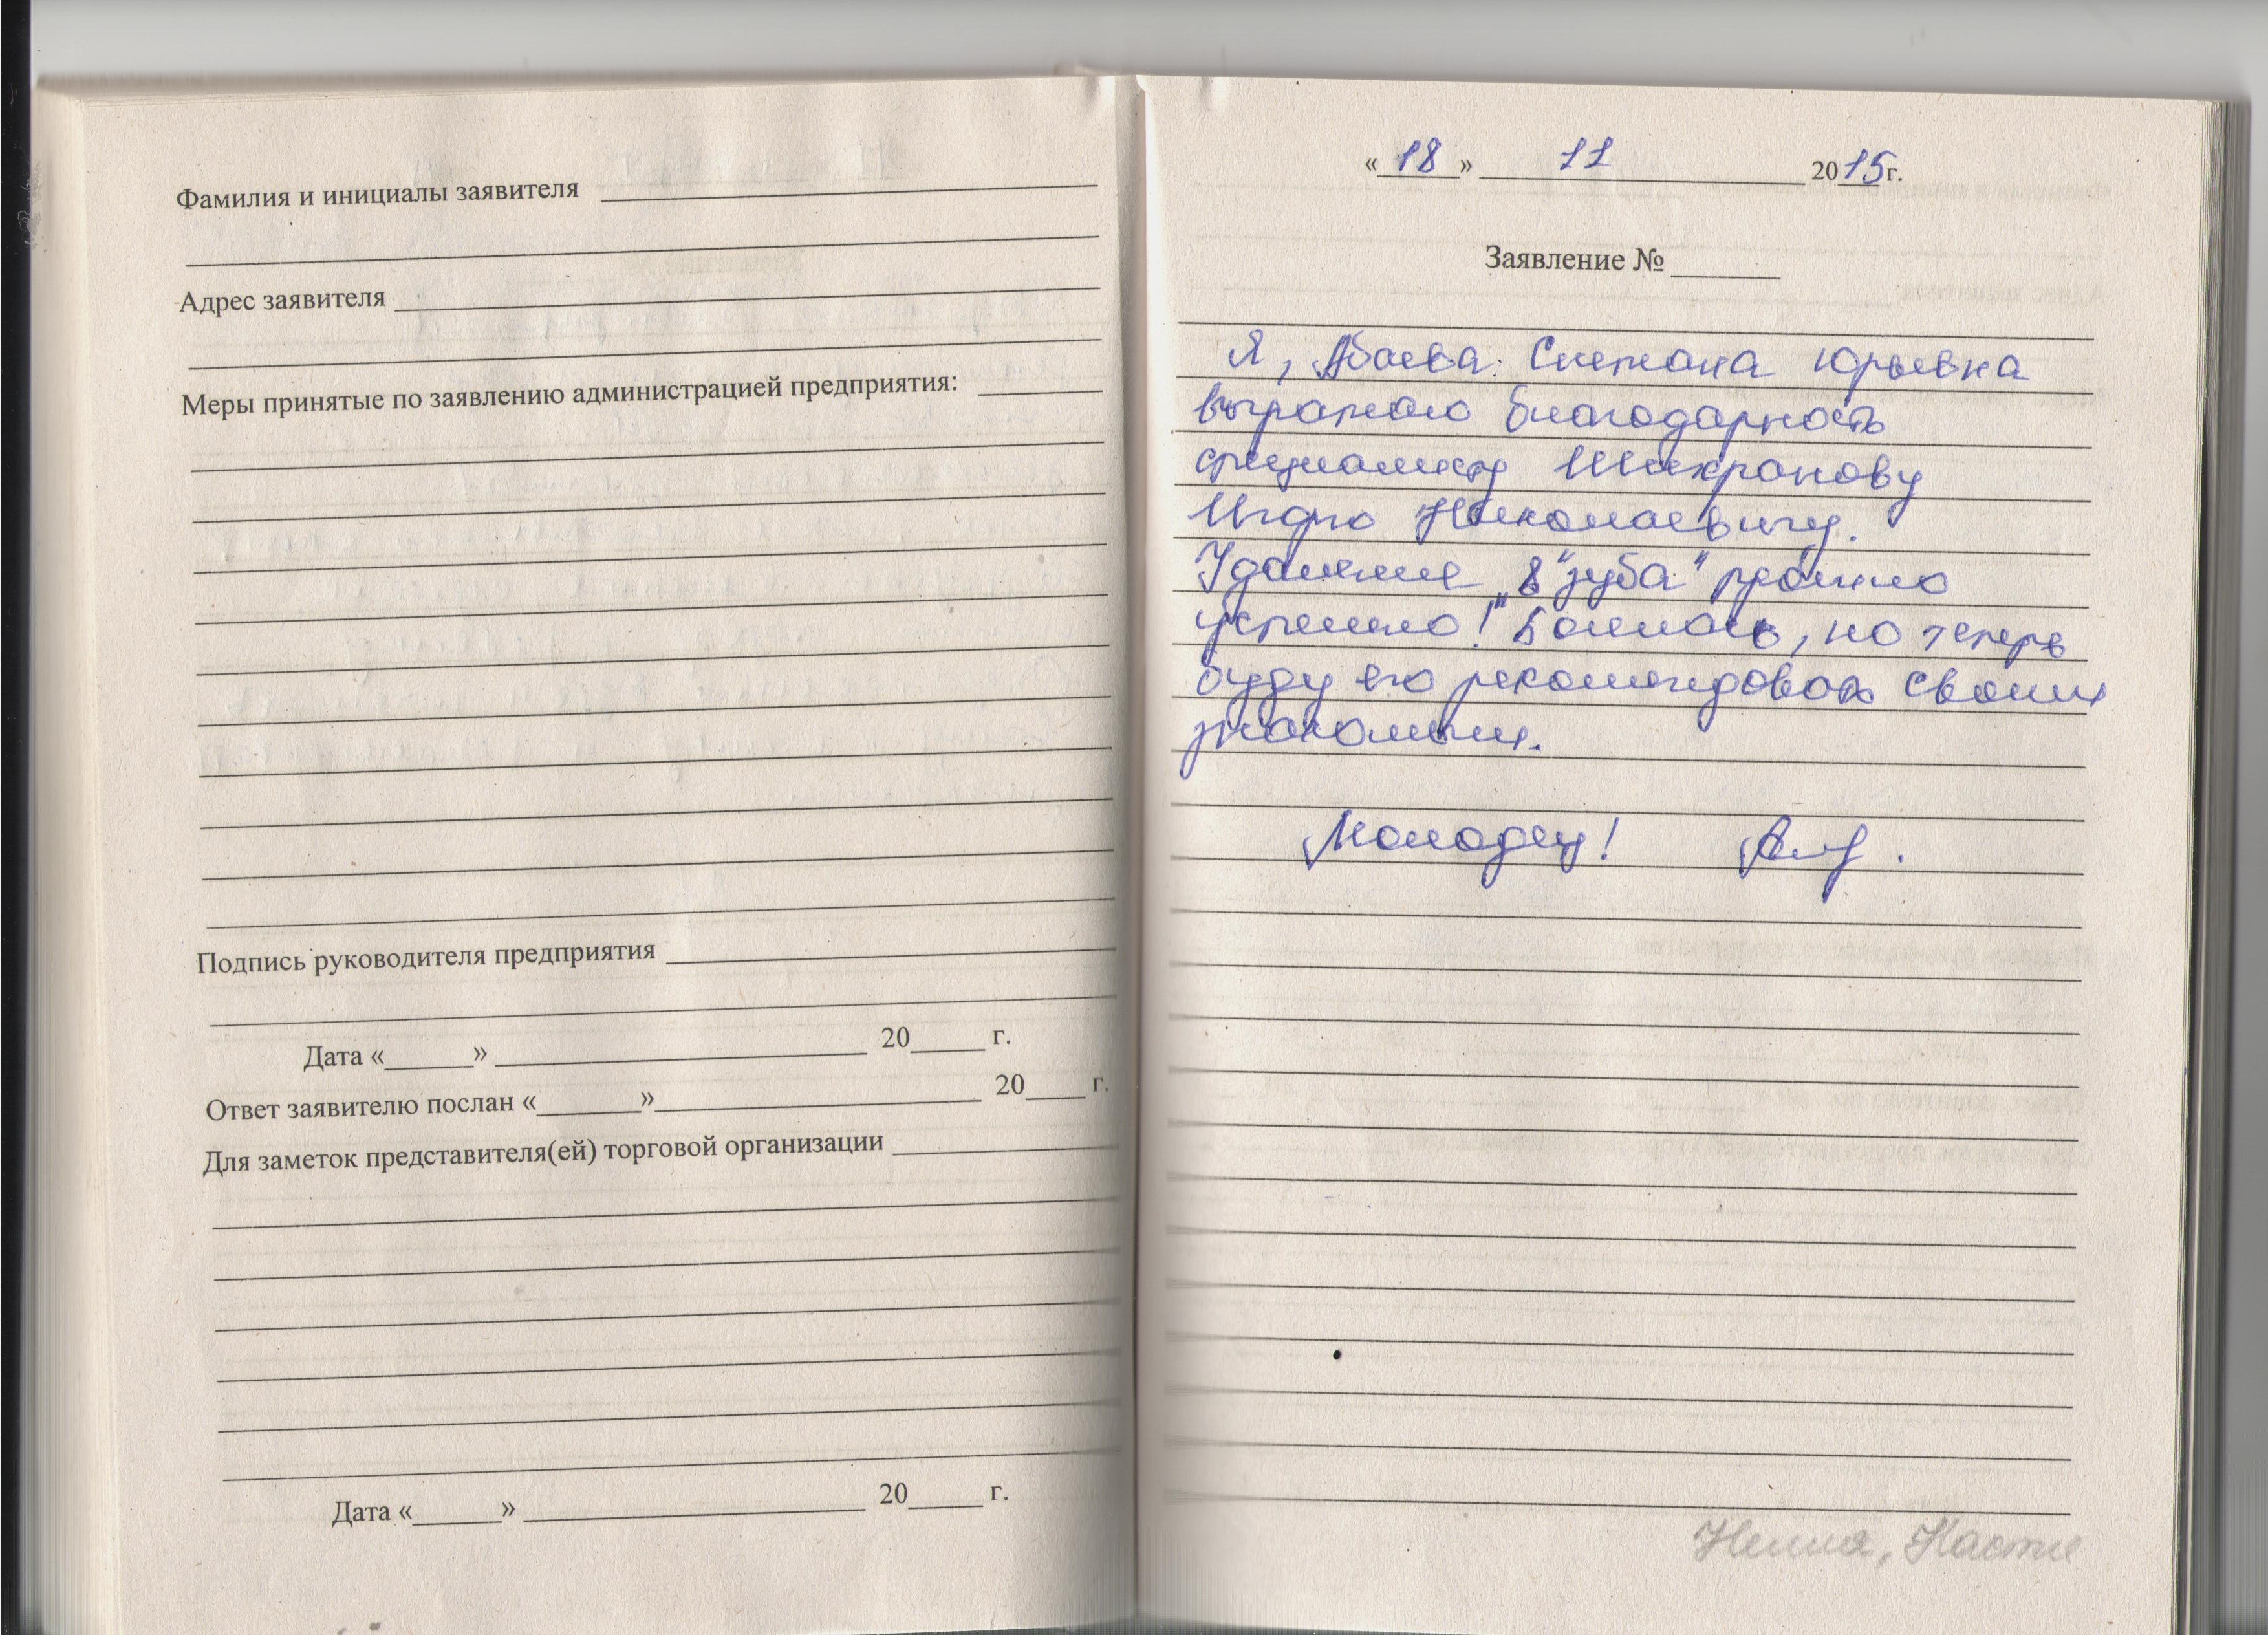 Фамилия и инициалы заявителя
Адрес заявителя
Меры принятые по заявлению администрацией предприятия:
Подпись руководителя предприятия
Дата «____» ____ 20____ г.
Ответ заявителю послан «____» ____ 20____ г.
Для заметок представителя(ей) торговой организации
Дата «____» ____ 20____ г.
«18» 11 2015г.
Заявление № ____
Я, Абаева Снежана Юрьевна
выражаю благодарность
специалисту Шикранову
Игорю Николаевичу.
Удаления „8" зуба" прошло
успешно!" Боялась, но теперь
буду его рекомендовать своим
знакомым.
Молодец!
Нелля, Настя